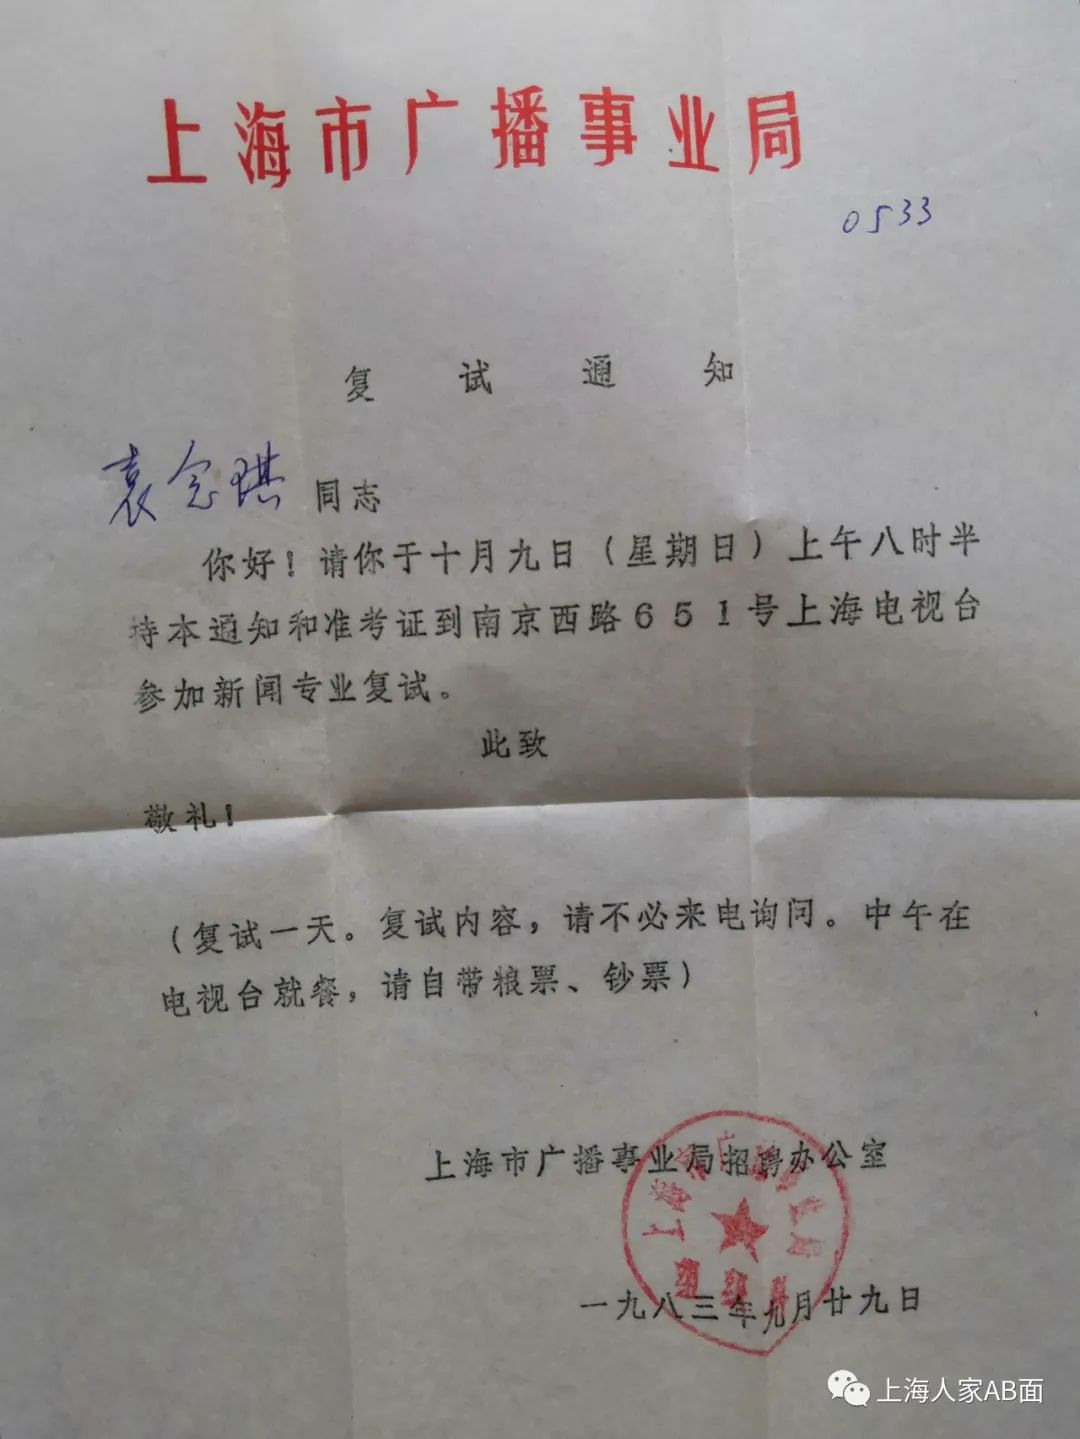 上海市广播事业局
0533
复试通知
袁念琪 同志
你好！请你于十月九日（星期日）上午八时半
持本通知和准考证到南京西路651号上海电视台
参加新闻专业复试。
此致
敬礼！
（复试一天。复试内容，请不必来电询问。中午在
电视台就餐，请自带粮票、钞票）
上海市广播事业局招聘办公室
上海市广播事业局
一九八三年九月廿九日
上海人家AB面